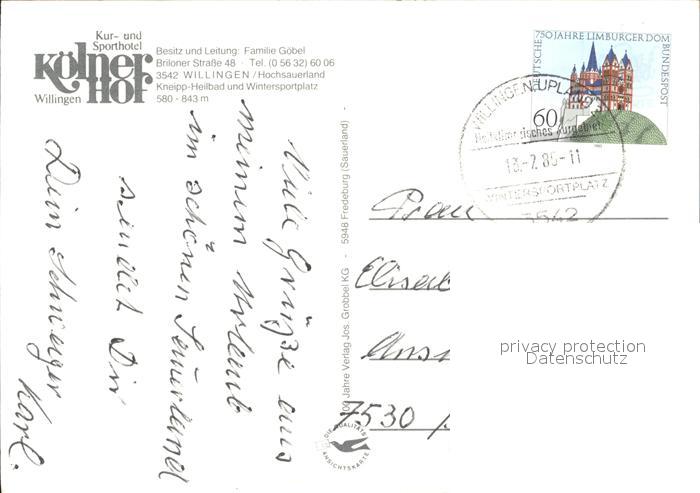 Kur- und
Sporthotel
Kölner
Hof
Willingen
Besitz und Leitung: Familie Göbel
Briloner Straße 48 · Tel. (0 56 32) 60 06
3542 WILLINGEN / Hochsauerland
Kneipp-Heilbad und Wintersportplatz
580 - 843 m
Viele Grüße aus
meinem Urlaub
im schönen Sauerland
sendet Dir
Dein Schwager
Karl.
100 Jahre Verlag Jos. Grobbel KG - 5948 Fredeburg (Sauerland)
DIE QUALITÄTS
ANSICHTSKARTE
750 JAHRE LIMBURGER DOM
DEUTSCHE BUNDESPOST
60
WILLINGEN, UPLAND
heilklimatisches Kurgebiet
-11
WINTERSPORTPLATZ
3542
Frau
Elisab
7530
privacy protection
Datenschutz